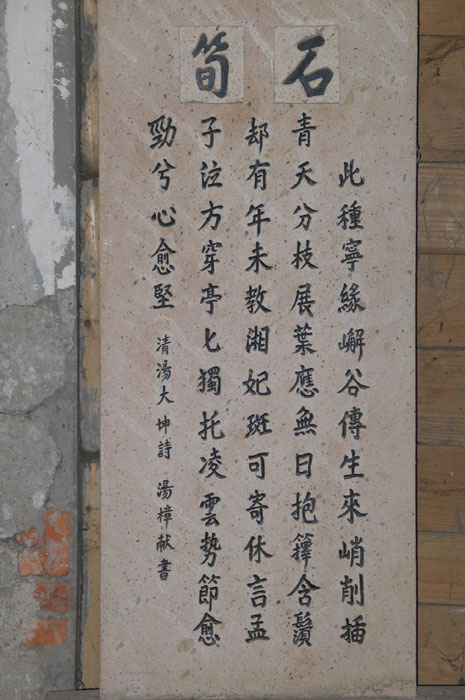 石筍
此種寧緣嶰谷傳生來峭削插
青天分枝展葉應無日抱籜含鬚
却有年未教湘妃斑可寄休言孟
子泣方穿亭匕獨托凌雲勢節愈
勁兮心愈堅 清湯大坤詩 湯樟献書